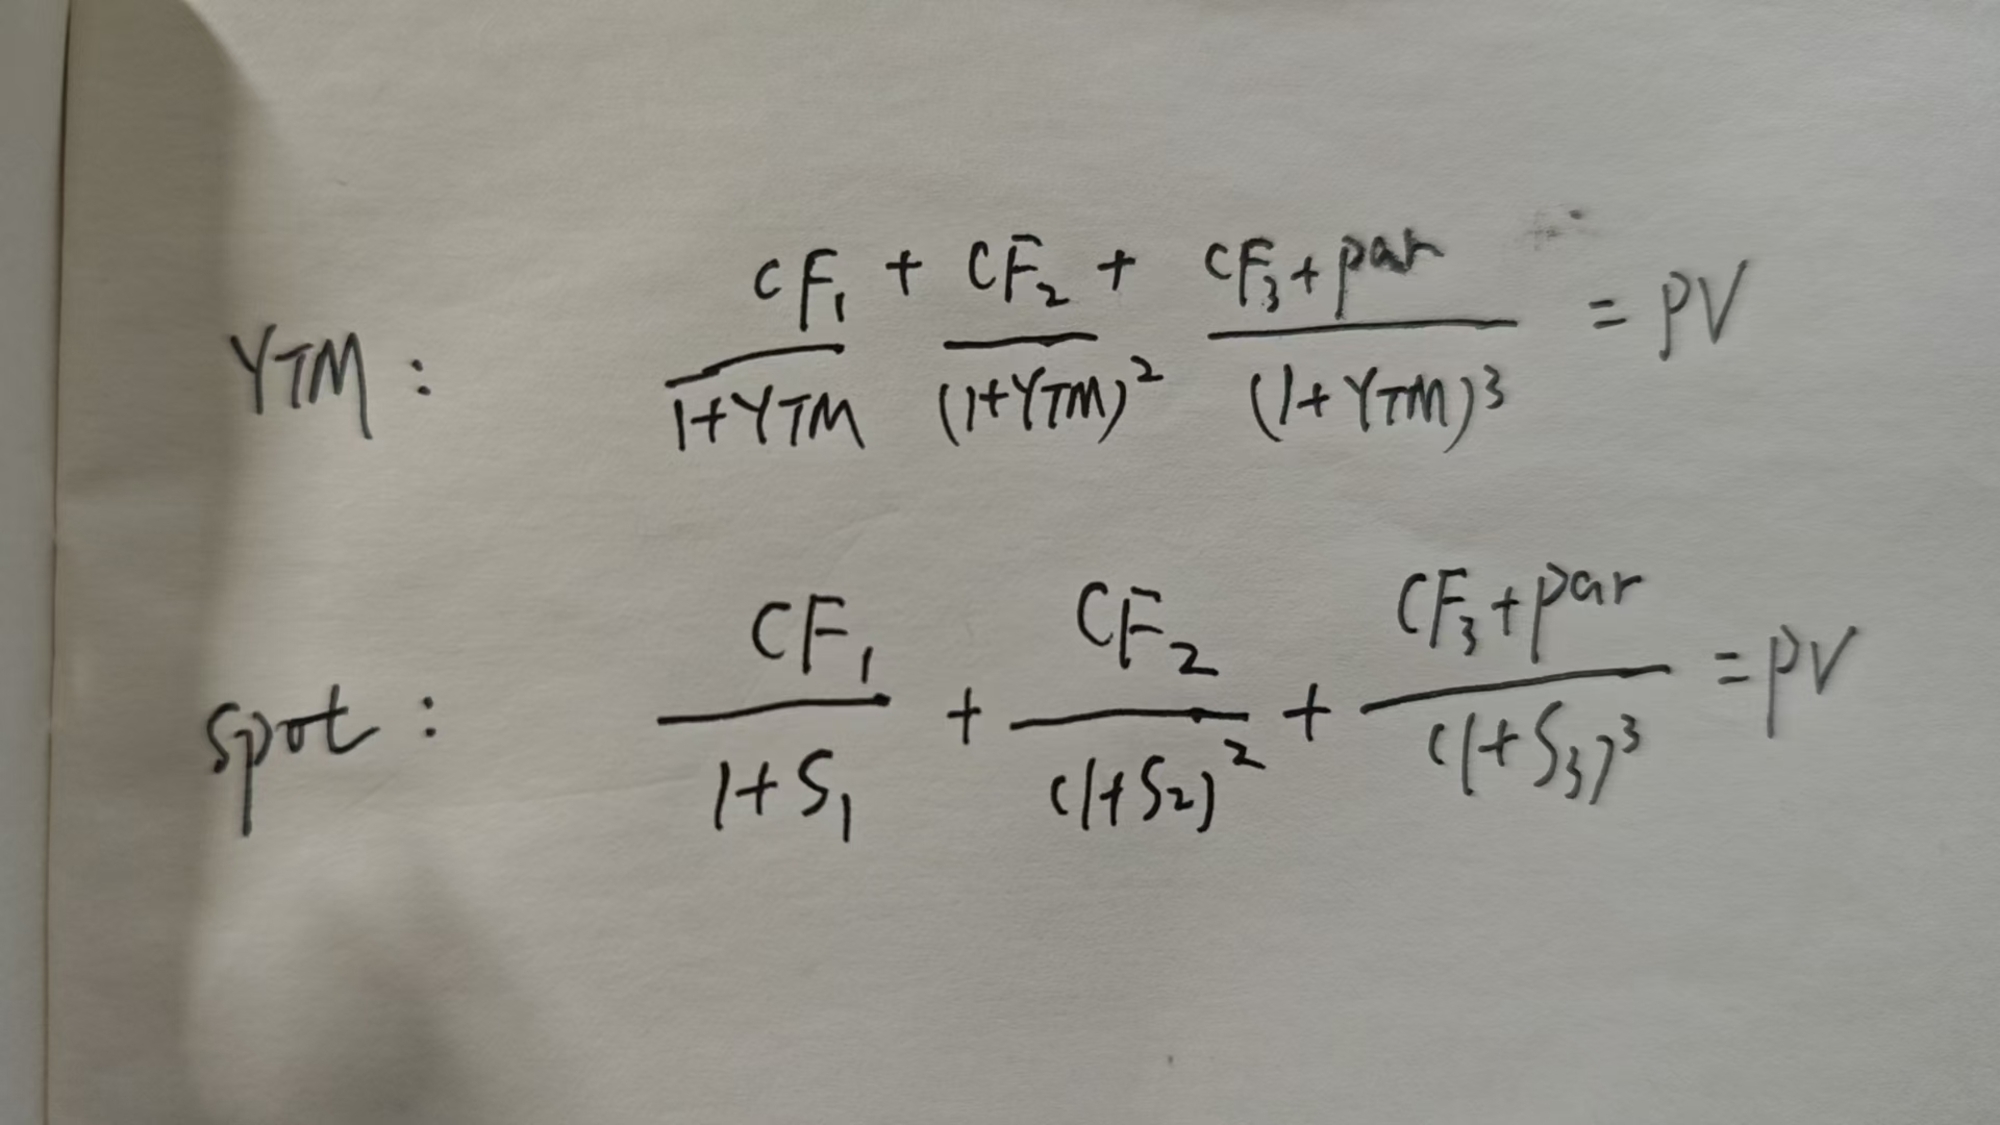 YTM: CF₁/(1+YTM) + CF₂/(1+YTM)² + (CF₃+par)/(1+YTM)³ = PV
spot: CF₁/(1+S₁) + CF₂/(1+S₂)² + (CF₃+par)/(1+S₃)³ = PV